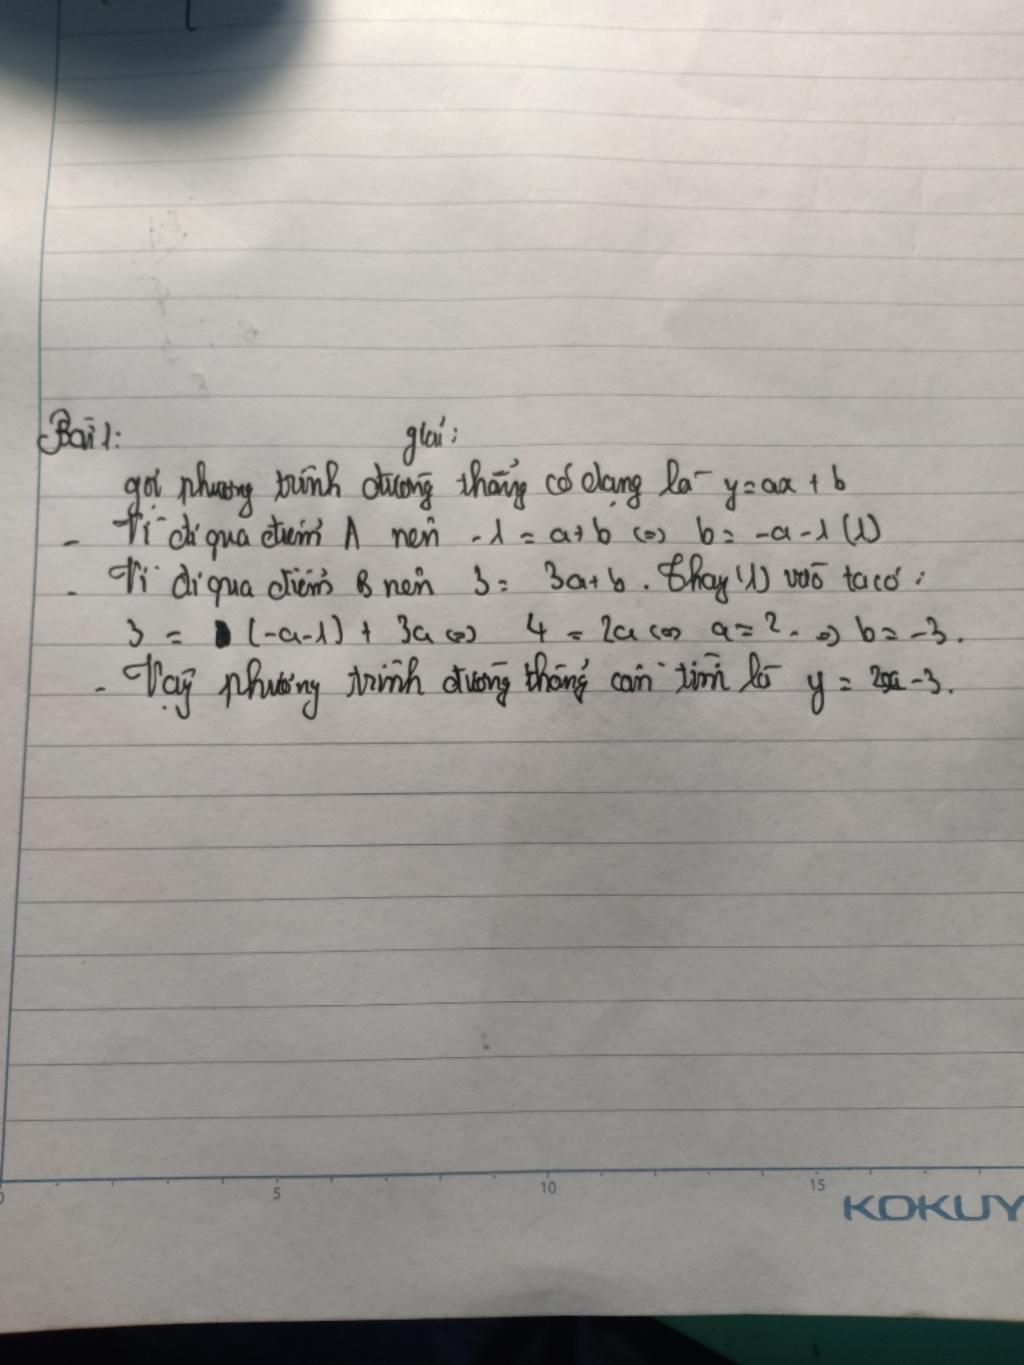 Bài 1: giải:
gọi phương trình đường thẳng có dạng là y=ax + b
- Vì đi qua điểm A nên -1 = a+b <=> b = -a-1 (1)
- Vì đi qua điểm B nên 3 = 3a+b. Thay (1) vào ta có:
3 = (-a-1) + 3a <=> 4 = 2a <=> a = 2. => b = -3.
- Vậy phương trình đường thẳng cần tìm là y = 2x-3.
0 5 10 15
KOKUY